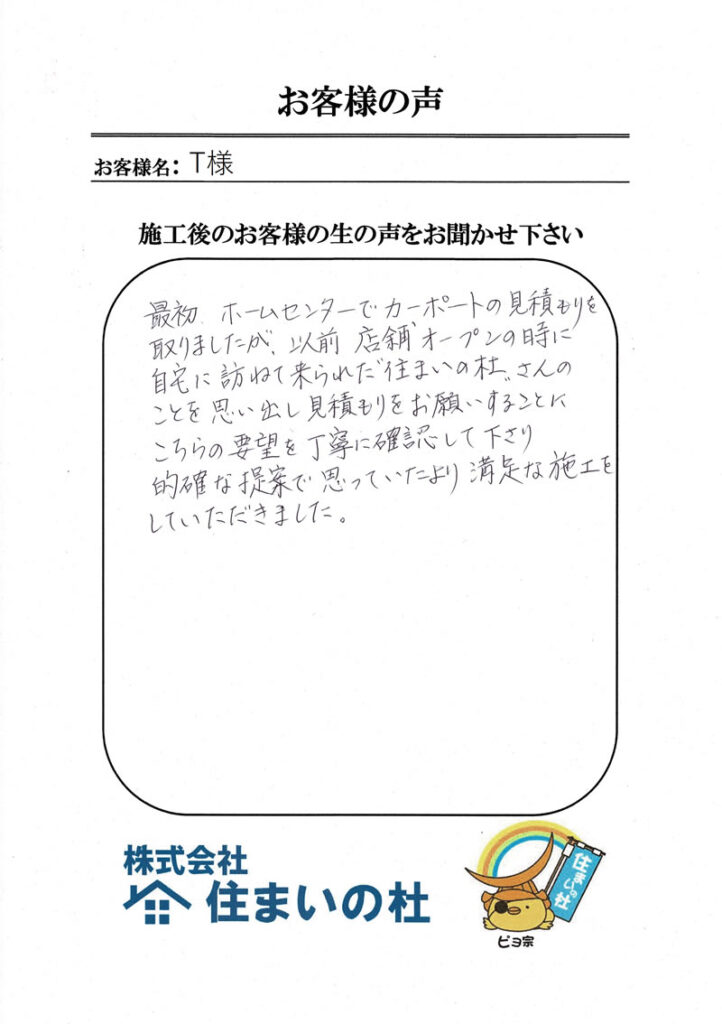 お客様の声
お客様名：T様
施工後のお客様の生の声をお聞かせ下さい
最初、ホームセンターでカーポートの見積もりを
取りましたが、以前 店舗オープンの時に
自宅に訪ねて来られた“住まいの杜”さんの
ことを思い出し見積もりをお願いすることに
こちらの要望を丁寧に確認して下さり
的確な提案で思っていたより満足な施工を
していただきました。
株式会社
住まいの杜
住まいの杜
ピヨ宗